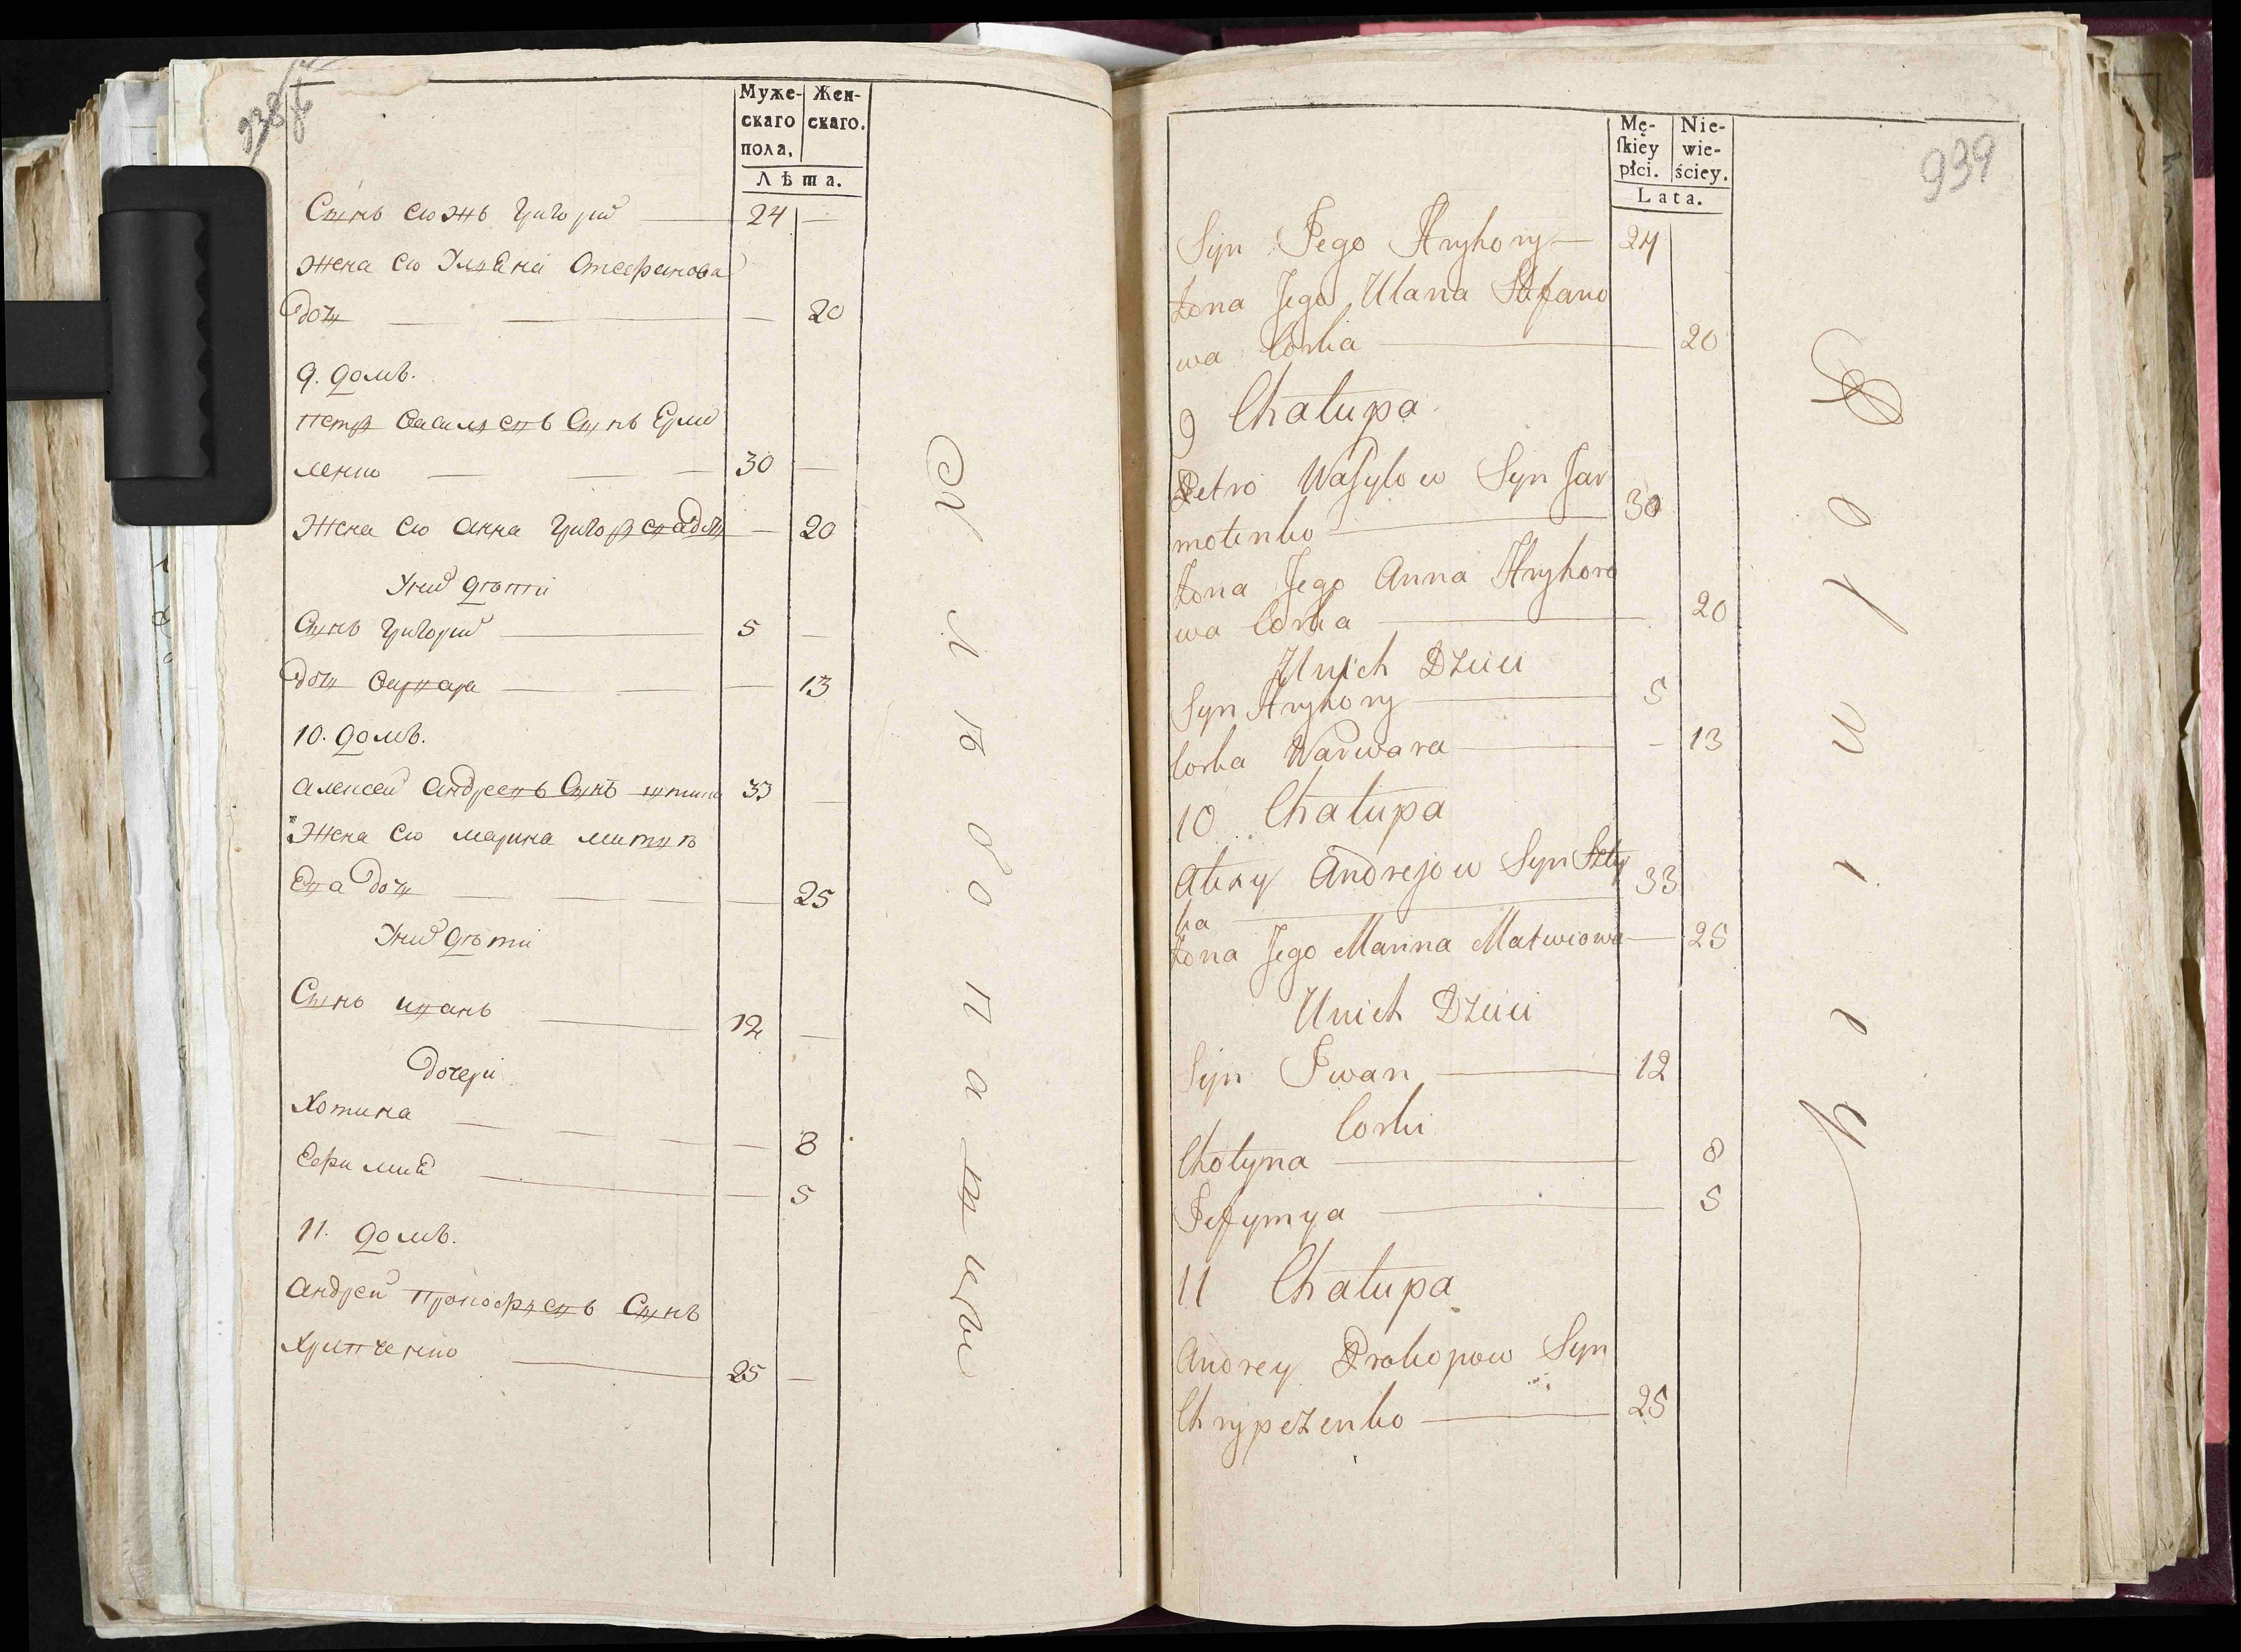 938
Муже-
скаго
пола,
Жен-
скаго.
Лѣта.
Сынъ ево жъ Григорий 24 —
жена ево Улѣяна Стефанова
дочь — 20
9. домъ.
Петръ Василевъ Сынъ Ермо
ленко — 30 —
Жена ево Анна Григорева дочь — 20
У них дѣти
Сынъ Григорий — 5 —
дочь Варвара — 13
10. домъ.
Алексей Андреевъ Сынъ 33 —
Жена ево Марина Матвѣ
ева дочь — 25
У них дѣти
Сынъ Иванъ — 12 —
дочери
Хотина — 8
Ефимия — 5
11. домъ.
Андрей Прокофьевъ Сынъ
Хрипченко — 25 —
Хлѣбопашцы
939
Mę-
ſkiey
płci.
Nie-
wie-
ściey.
Lata.
Syn Jego Hryhory — 24
Żona Jego Ulana Stefano
wa Corka — 20
9 Chałupa
Petro Wasylow Syn Jar
molenko — 30
Żona Jego Anna Hryhoro
wa Corka — 20
U nich Dzieci
Syn Hryhory — 5
Corka Warwara — - 13
10 Chałupa
Alexy Andrejow Syn
ka — 33
Żona Jego Marina Matwiowa — 25
U nich Dzieci
Syn Iwan — 12
Corki
Chotyna — 8
Jefymya — 5
11 Chałupa
Andrey Prokopow Syn
Chrypczenko — 25